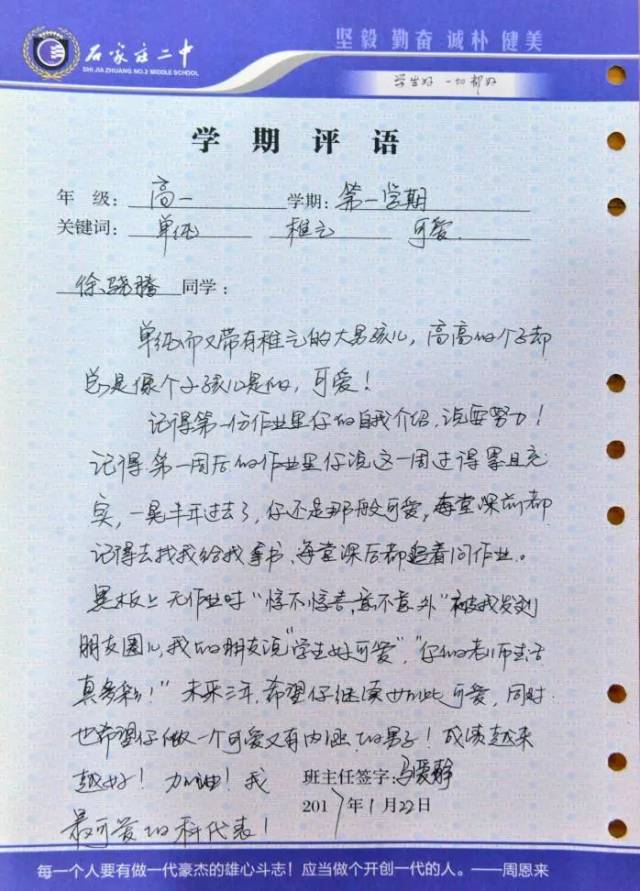 石家庄二中
SHI JIA ZHUANG NO.2 MIDDLE SCHOOL
坚毅 勤奋 诚朴 健美
学生好 一切都好
学期评语
年 级: 高一 学期: 第一学期
关键词: 单纯 稚气 可爱
徐骁腾 同学:
单纯而又带有稚气的大男孩儿,高高的个子却
总是像个小孩儿是的,可爱!
记得第一份作业里你的自我介绍,说要努力!
记得第一周后的作业里你说这一周过得累且充
实,一晃半年过去了,你还是那般可爱,每堂课前都
记得去找我给我拿书,每堂课后都追着问作业。
黑板上无作业时“惊不惊喜,意不意外”被我发到
朋友圈儿,我的朋友说“学生好可爱”,“你的老师生活
真多彩!”未来三年,希望你继续如此可爱,同时
也希望你做一个可爱又有内涵的男子!成绩越来
越好!加油!我
最可爱的科代表!
班主任签字:马爱静
2017年1月22日
每一个人要有做一代豪杰的雄心斗志!应当做个开创一代的人。——周恩来